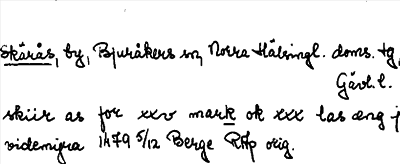 Skärås, by, Bjuråkers sn, Norra Hälsingl. doms. tg,
Gävl. l.
skiir as for xxv mark ok xxx las æng j
videmigra 1479 5/12 Berge RAp orig.